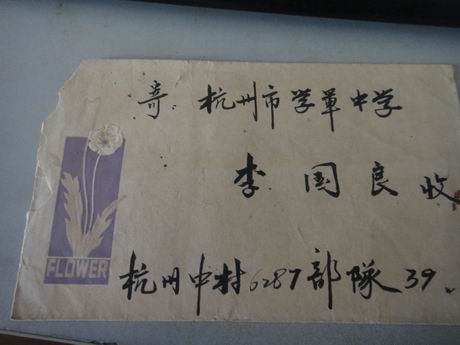 寄 杭州市学軍中学
李国良 收
FLOWER
杭州中村6287部隊39、